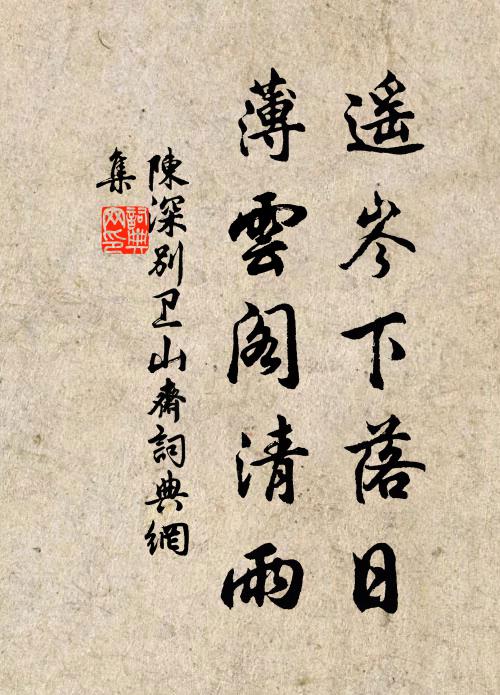 遥岑下落日
薄雲閣清雨
陳深別卫山齋詞典網
集
詞典
网印